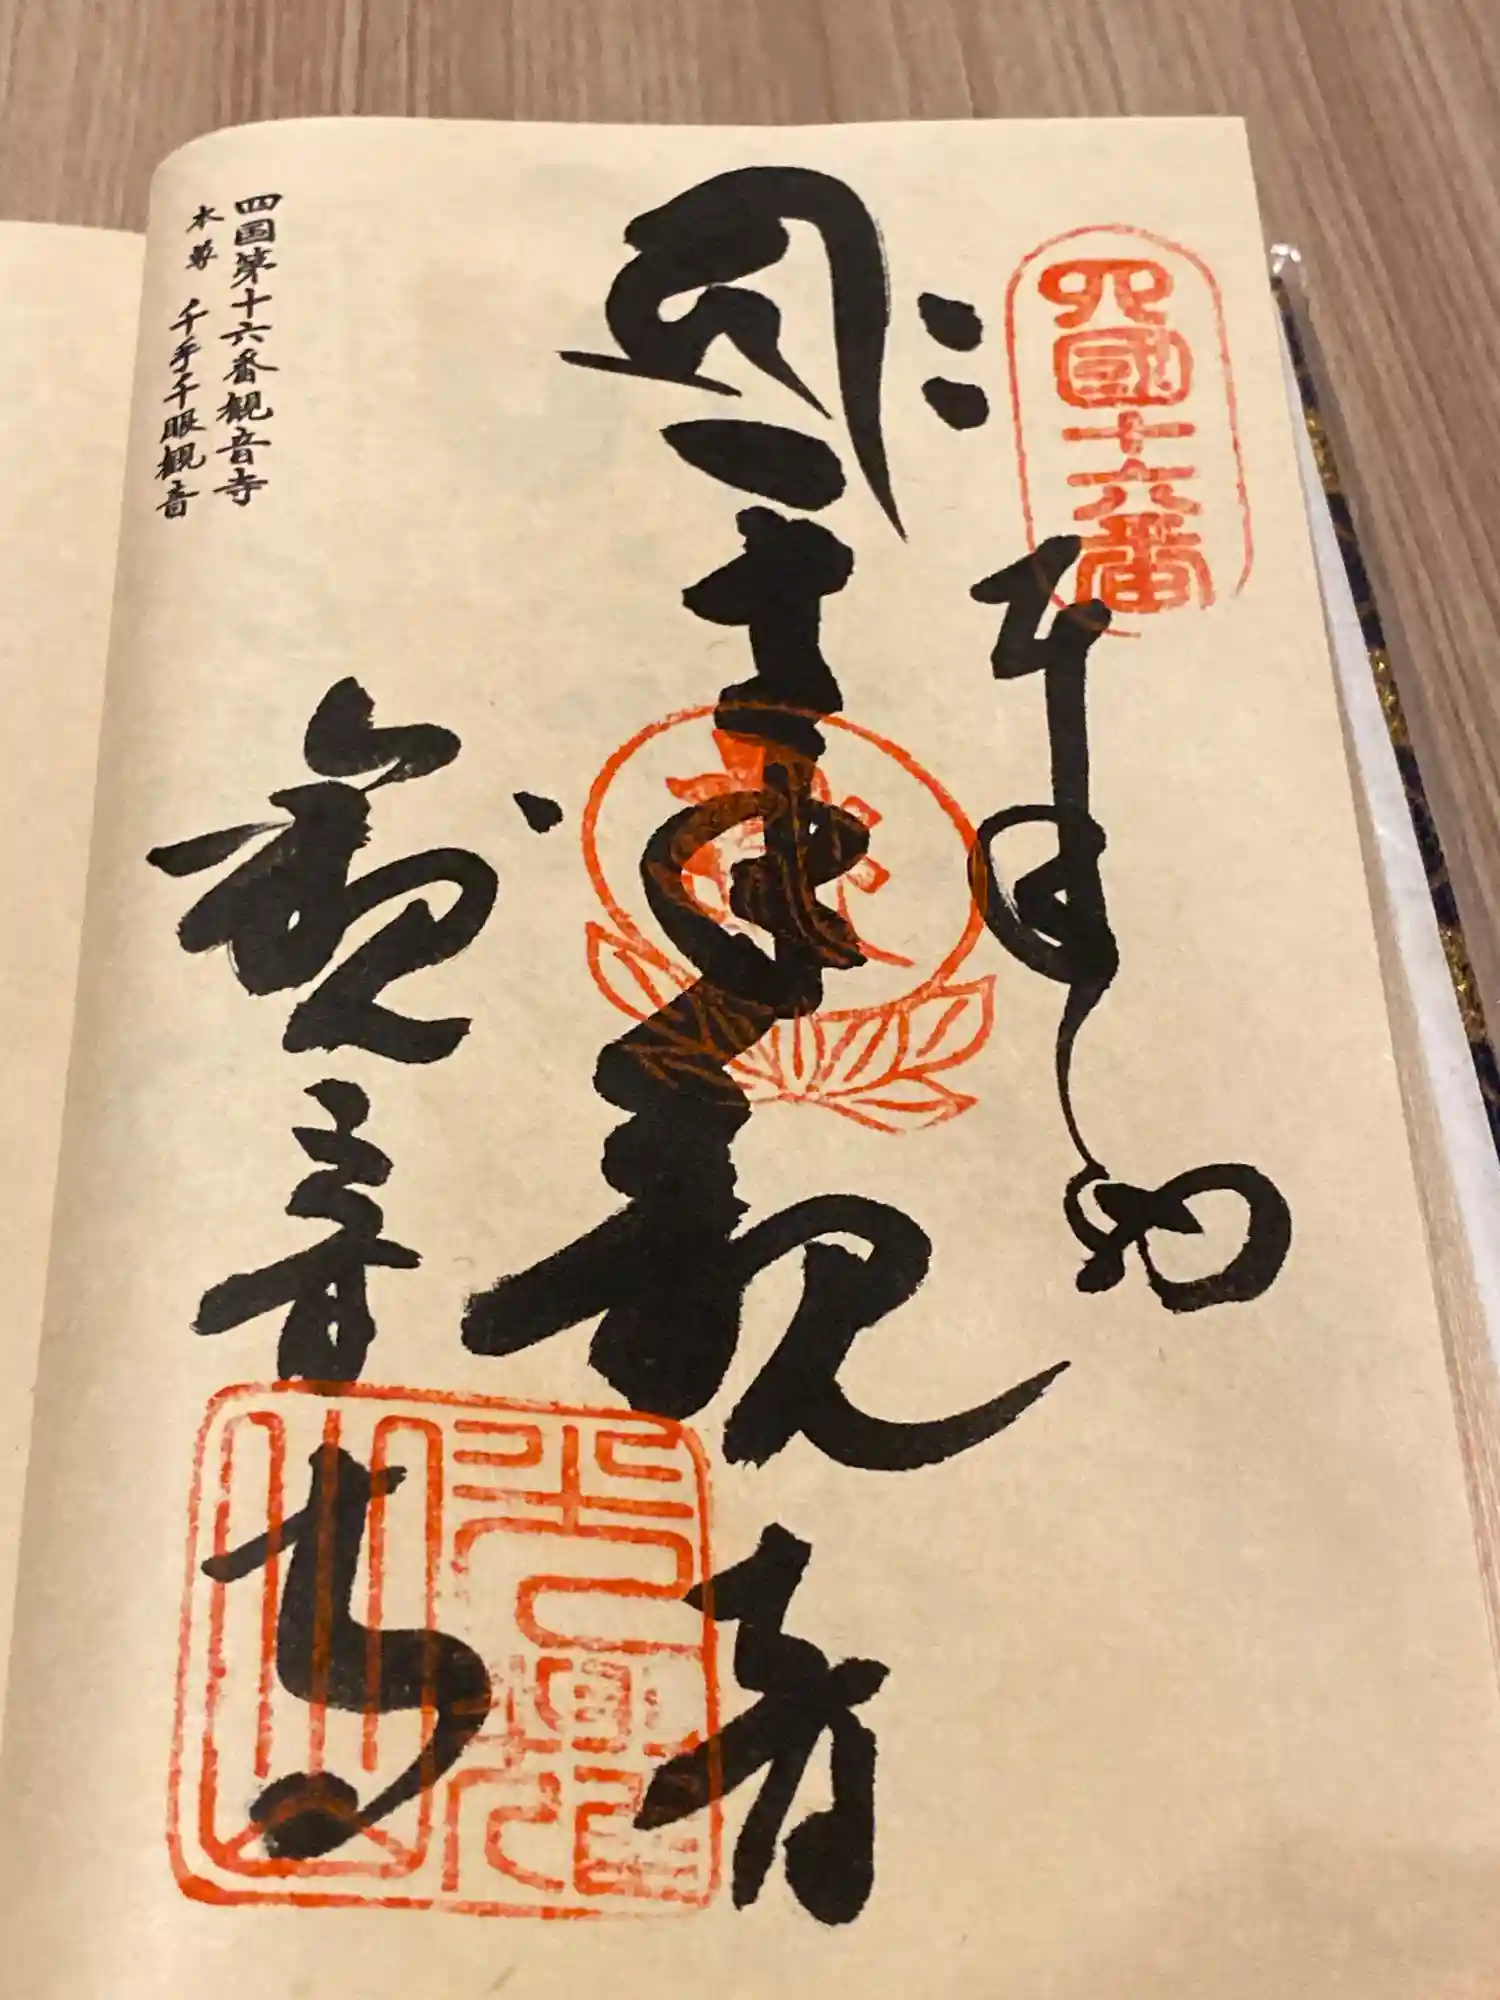 四國十六番
奉納
千手観音
観音寺
四国第十六番観音寺
本尊 千手千眼観音